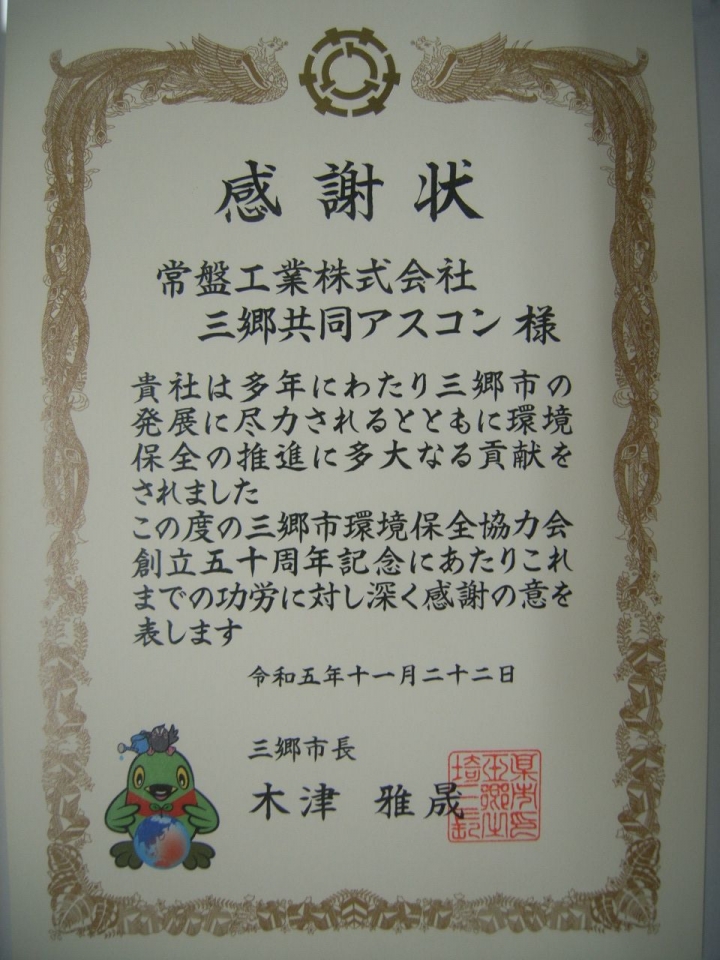 感謝状
常盤工業株式会社
三郷共同アスコン 様
貴社は多年にわたり三郷市の
発展に尽力されるとともに環境
保全の推進に多大なる貢献を
されました
この度の三郷市環境保全協力会
創立五十周年記念にあたりこれ
までの功労に対し深く感謝の意を
表します
令和五年十一月二十二日
三郷市長
木津 雅晟